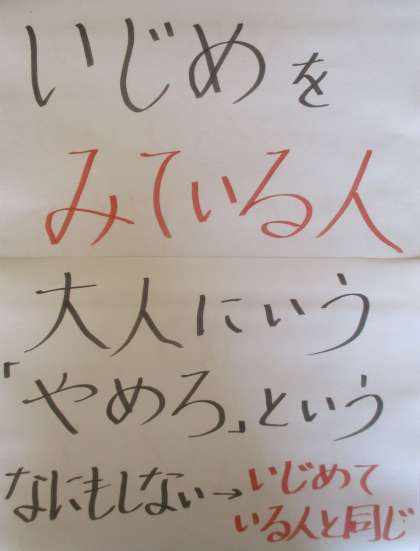 いじめを
みている人
大人にいう
「やめろ」という
なにもしない→いじめて
いる人と同じ